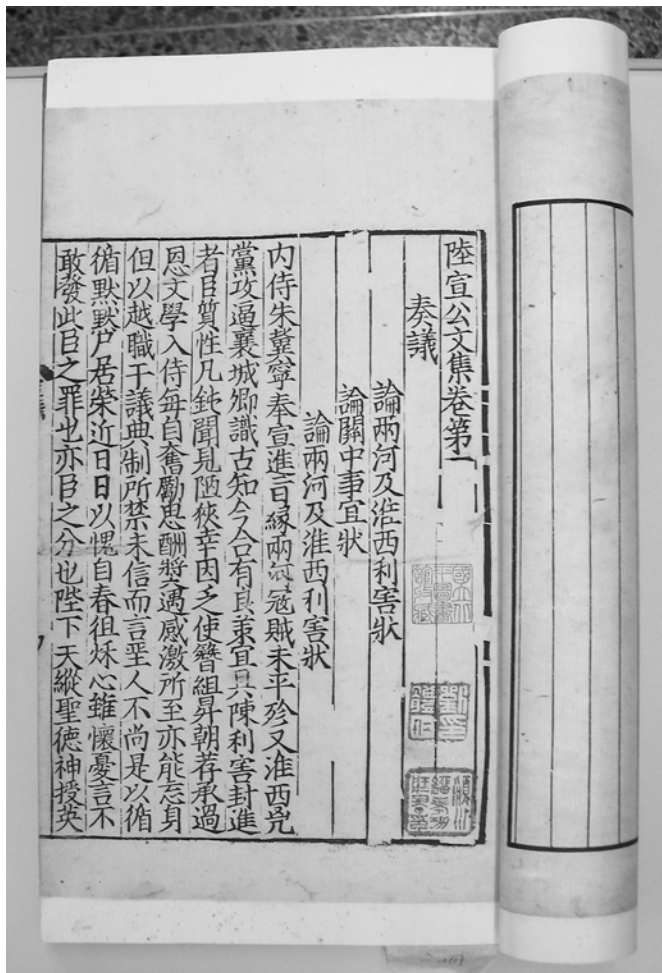 陸宣公文集卷第一
奏議
論兩河及淮西利害狀
論關中事宜狀
論兩河及淮西利害狀
内侍朱冀寧奉宣進旨緣兩河冦賊未平殄又淮西兇
黨攻逼襄城卿識古知今合有良策宜具陳利害封進
者臣質性凡鈍聞見陋狹幸因乏使簪組昇朝荐承過
恩文學入侍每自奮勵思酬奬遇感激所至亦能忘身
但以越職干議典制所禁未信而言聖人不尚是以循
循默默尸居榮近日日以愧自春徂秌心雖懷憂言不
敢發此臣之罪也亦臣之分也陛下天縱聖德神授英